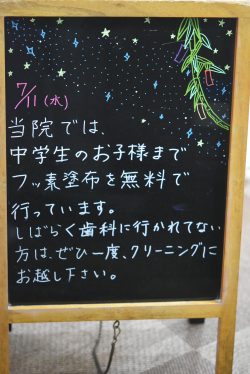 7/11 (水)
当院では、
中学生のお子様まで
フッ素塗布を無料で
行っています。
しばらく歯科に行かれてない
方は、ぜひ一度、クリーニングに
お越し下さい。